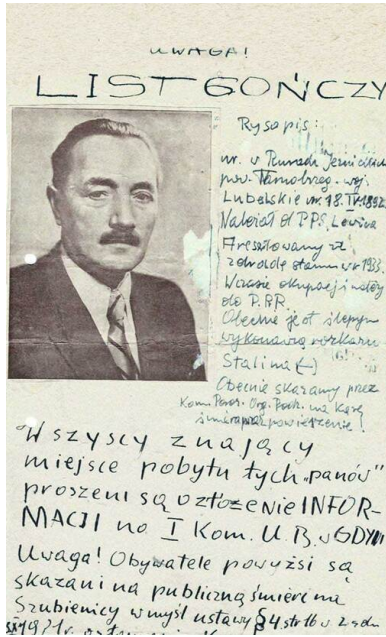 UWAGA!
LIST GOŃCZY
Rysopis:
ur. w
pow. Tarnobrzeg. woj.
Lubelskie ur. 18.IV.1892
Należał d P.P.S. Lewica
Aresztowany za
zdradę stanu w r 1933
W czasie okupacji wstąp
do P.P.R.
Obecnie jest ślepym
wykonawcą rozkazu
Stalina (-)
Obecnie skazany przez
Kom. Org. na karę
śmierci przez powieszenie!
Wszyscy znający
miejsce pobytu tych „panów”
proszeni są o złożenie INFOR-
MACJI na I Kom. U.B. w GDYNI
Uwaga! Obywatele powyżsi są
skazani na publiczną śmierć na
Szubienicy w myśl ustawy § 4 str 16